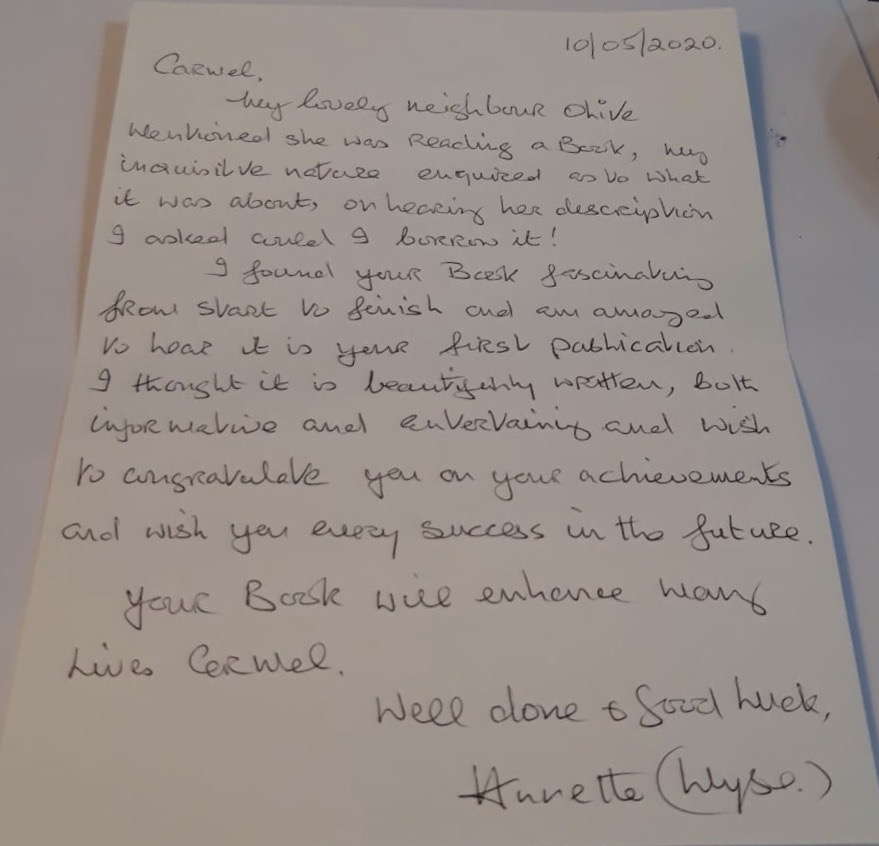 10/05/2020.
Carmel,
My lovely neighbour Olive
mentioned she was Reading a Book, my
inquisitve nature enquired as to what
it was about, on hearing her description
I asked could I borrow it!
I found your Book fascinating
from start to finish and am amazed
to hear it is your first publication.
I thought it is beautifully written, both
informative and entertaining and wish
to congratulate you on your achievements
and wish you every success in the future.
Your Book will enhance many
Lives Carmel.
Well done & Good Luck,
Annette (Wyse.)